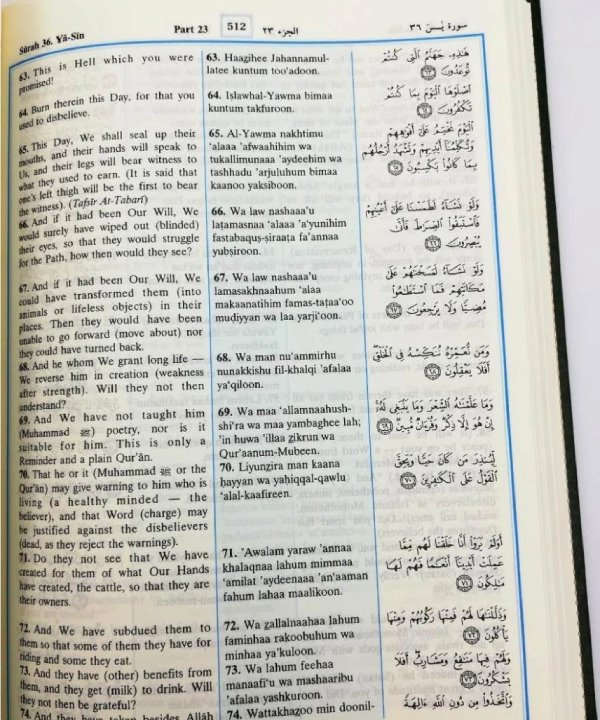 Sûrah 36. Yâ-Sîn
Part 23
512
الجزء ٢٣
سورة يس ٣٦
63. This is Hell which you were
promised!
64. Burn therein this Day, for that you
used to disbelieve.
65. This Day, We shall seal up their
mouths, and their hands will speak to
Us, and their legs will bear witness to
what they used to earn. (It is said that
one's left thigh will be the first to bear
the witness). (Tafsîr At-Tabarî)
66. And if it had been Our Will, We
would surely have wiped out (blinded)
their eyes, so that they would struggle
for the Path, how then would they see?
67. And if it had been Our Will, We
could have transformed them (into
animals or lifeless objects) in their
places. Then they would have been
unable to go forward (move about) nor
they could have turned back.
68. And he whom We grant long life —
We reverse him in creation (weakness
after strength). Will they not then
understand?
69. And We have not taught him
(Muhammad ﷺ) poetry, nor is it
suitable for him. This is only a
Reminder and a plain Qur'ân.
70. That he or it (Muhammad ﷺ or the
Qur'ân) may give warning to him who is
living (a healthy minded — the
believer), and that Word (charge) may
be justified against the disbelievers
(dead, as they reject the warnings).
71. Do they not see that We have
created for them of what Our Hands
have created, the cattle, so that they are
their owners.
72. And We have subdued them to
them so that some of them they have for
riding and some they eat.
73. And they have (other) benefits from
them, and they get (milk) to drink. Will
they not then be grateful?
74. And they have taken besides Allâh
63. Haagihee Jahannamul-
latee kuntum too'adoon.
64. Islawhal-Yawma bimaa
kuntum takfuroon.
65. Al-Yawma nakhtimu
'alaaa 'afwaahihim wa
tukallimunaaa 'aydeehim wa
tashhadu 'arjuluhum bimaa
kaanoo yaksiboon.
66. Wa law nashaaa'u
laṭamasnaa 'alaaa 'a'yunihim
fastabaquṣ-ṣiraaṭa fa'annaa
yubṣiroon.
67. Wa law nashaaa'u
lamasakhnaahum 'alaa
makaanatihim famas-taṭaa'oo
muḍiyyan wa laa yarji'oon.
68. Wa man nu'ammirhu
nunakkishu fil-khalqi 'afalaa
ya'qiloon.
69. Wa maa 'allamnaahush-
shi'ra wa maa yambaghee lah;
'in huwa 'illaa zikrun wa
Qur'aanum-Mubeen.
70. Liyungira man kaana
hayyan wa yaḥiqqal-qawlu
'alal-kaafireen.
71. 'Awalam yaraw 'annaa
khalaqnaa lahum mimmaa
'amilat 'aydeenaaa 'an'aaman
fahum lahaa maalikoon.
72. Wa zallalnaahaa lahum
faminhaa rakoobuhum wa
minhaa ya'kuloon.
73. Wa lahum feehaa
manaafi'u wa mashaaribu
'afalaa yashkuroon.
74. Wattakhazoo min doonil-
هَٰذِهِۦ جَهَنَّمُ ٱلَّتِى كُنتُمْ
تُوعَدُونَ ٦٣
ٱصْلَوْهَا ٱلْيَوْمَ بِمَا كُنتُمْ
تَكْفُرُونَ ٦٤
ٱلْيَوْمَ نَخْتِمُ عَلَىٰٓ أَفْوَٰهِهِمْ
وَتُكَلِّمُنَآ أَيْدِيهِمْ وَتَشْهَدُ أَرْجُلُهُم
بِمَا كَانُوا۟ يَكْسِبُونَ ٦٥
وَلَوْ نَشَآءُ لَطَمَسْنَا عَلَىٰٓ أَعْيُنِهِمْ
فَٱسْتَبَقُوا۟ ٱلصِّرَٰطَ فَأَنَّىٰ
يُبْصِرُونَ ٦٦
وَلَوْ نَشَآءُ لَمَسَخْنَٰهُمْ عَلَىٰ
مَكَانَتِهِمْ فَمَا ٱسْتَطَٰعُوا۟
مُضِيًّا وَلَا يَرْجِعُونَ ٦٧
وَمَن نُّعَمِّرْهُ نُنَكِّسْهُ فِى ٱلْخَلْقِ
أَفَلَا يَعْقِلُونَ ٦٨
وَمَا عَلَّمْنَٰهُ ٱلشِّعْرَ وَمَا يَنۢبَغِى لَهُۥٓ
إِنْ هُوَ إِلَّا ذِكْرٌ وَقُرْءَانٌ مُّبِينٌ ٦٩
لِّيُنذِرَ مَن كَانَ حَيًّا وَيَحِقَّ
ٱلْقَوْلُ عَلَى ٱلْكَٰفِرِينَ ٧٠
أَوَلَمْ يَرَوْا۟ أَنَّا خَلَقْنَا لَهُم مِّمَّا
عَمِلَتْ أَيْدِينَآ أَنْعَٰمًا فَهُمْ لَهَا
مَٰلِكُونَ ٧١
وَذَلَّلْنَٰهَا لَهُمْ فَمِنْهَا رَكُوبُهُمْ وَمِنْهَا
يَأْكُلُونَ ٧٢
وَلَهُمْ فِيهَا مَنَٰفِعُ وَمَشَارِبُ أَفَلَا
يَشْكُرُونَ ٧٣
وَٱتَّخَذُوا۟ مِن دُونِ ٱللَّهِ ءَالِهَةً